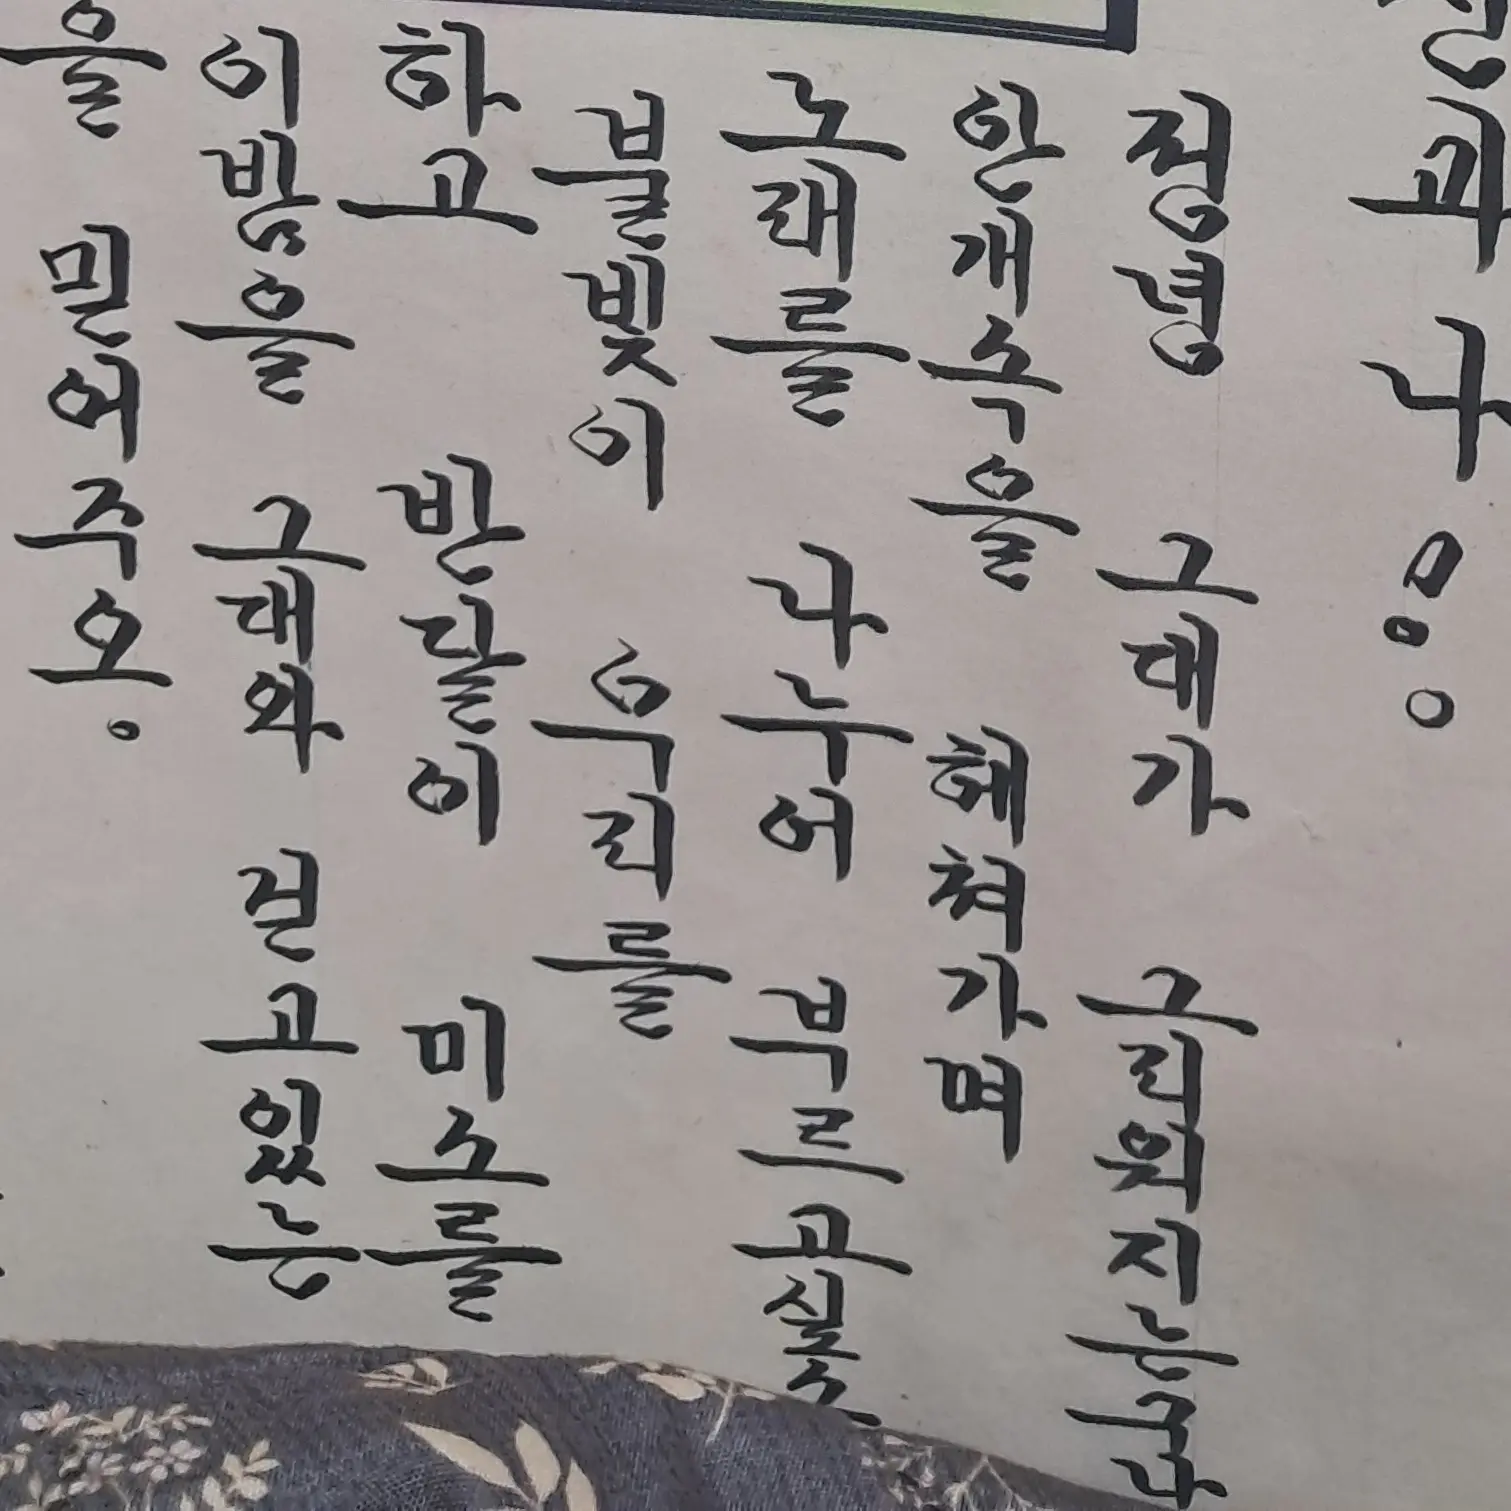 과 나!
정녕 그대가 그리워지는구나
안개속을 헤쳐가며
노래를 나누어 부르고싶소
불빛이 우리를
하고 반달이 미소를
이밤을 그대와 걷고있는
을 믿어주오.